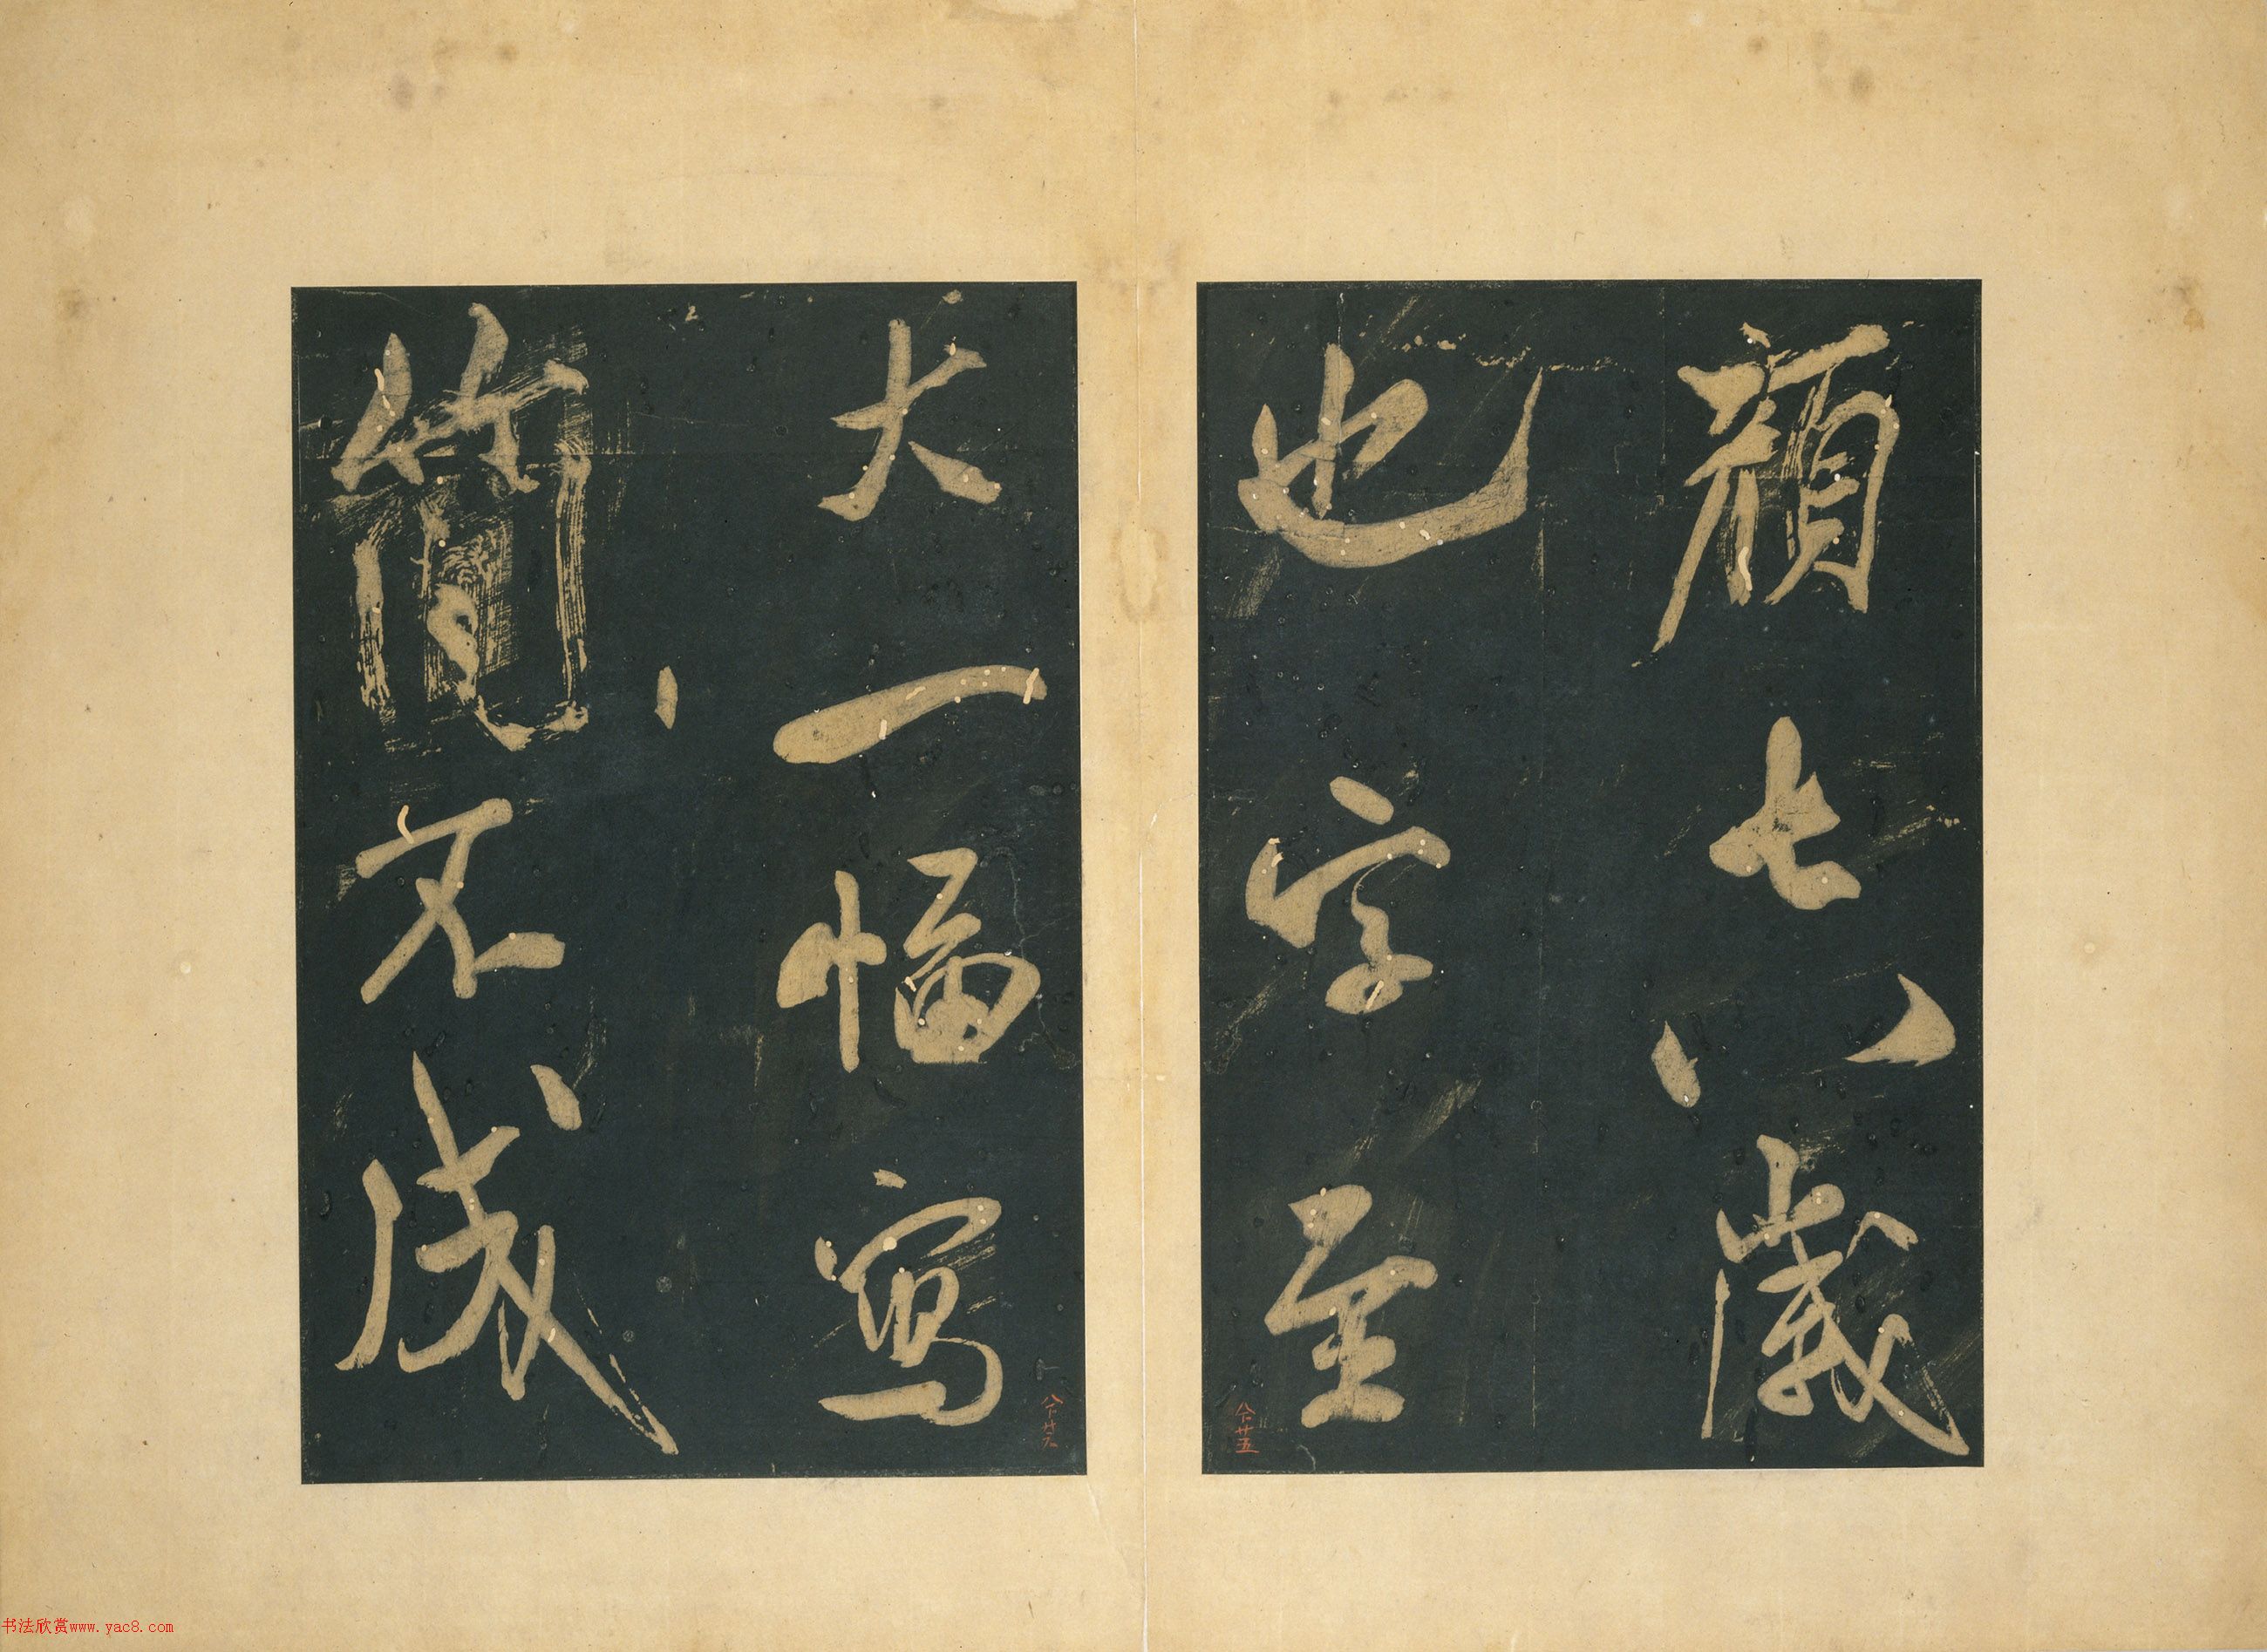 顏七八歲
也字至
廿五
大一幅寫
簡不成
廿六
书法欣赏www.yac8.com